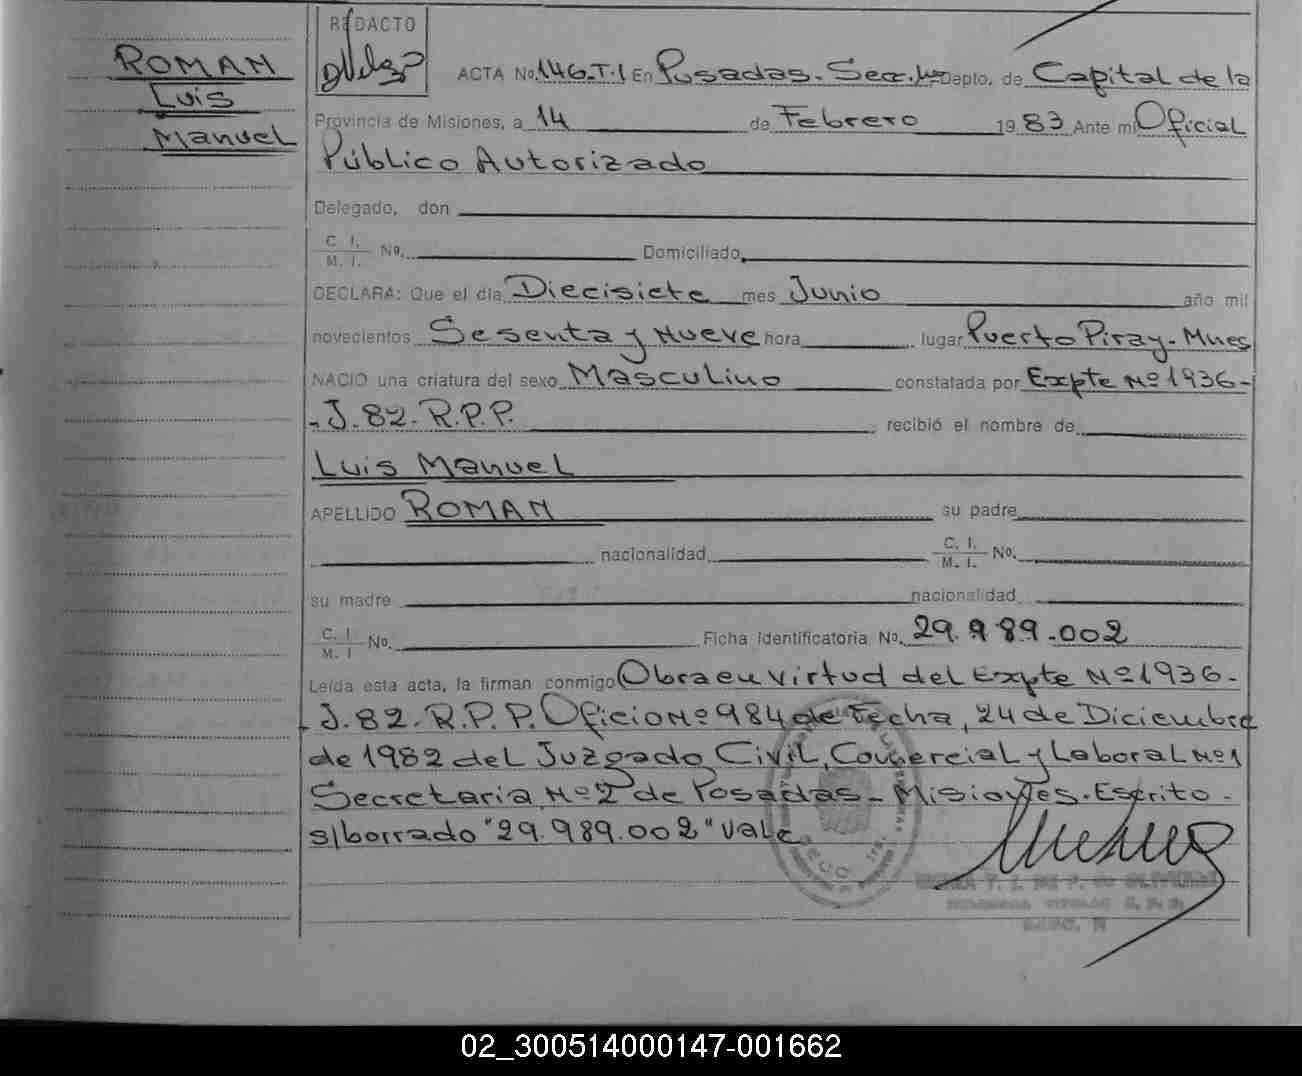 ROMAN
Luis
Manuel
REDACTO
ACTA No. 146-T-I En Posadas. Secc. 1ra Depto. de Capital de la
Provincia de Misiones, a 14 de Febrero 1983 Ante mi Oficial
Público Autorizado
Delegado, don
C. I.
M. I. No. Domiciliado
DECLARA: Que el día Diecisiete mes Junio año mil
novecientos Sesenta y Nueve hora lugar Puerto Piray - Mnes
NACIO una criatura del sexo Masculino constatada por Expte Nº 1936-
- J. 82. R.P.P. recibió el nombre de
Luis Manuel
APELLIDO ROMAN su padre
nacionalidad C. I. M. I. No.
su madre nacionalidad
C. I. M. I No. Ficha Identificatoria No. 29.989.002
Leída esta acta, la firman conmigo Obra en virtud del Expte Nº 1936-
- J. 82. R.P.P. Oficio Nº 984 de Fecha, 24 de Diciembre
de 1982 del Juzgado Civil, Comercial y Laboral Nº 1
Secretaria Nº 2 de Posadas - Misiones. Escrito -
s/borrado "29.989.002" Vale
02_300514000147-001662